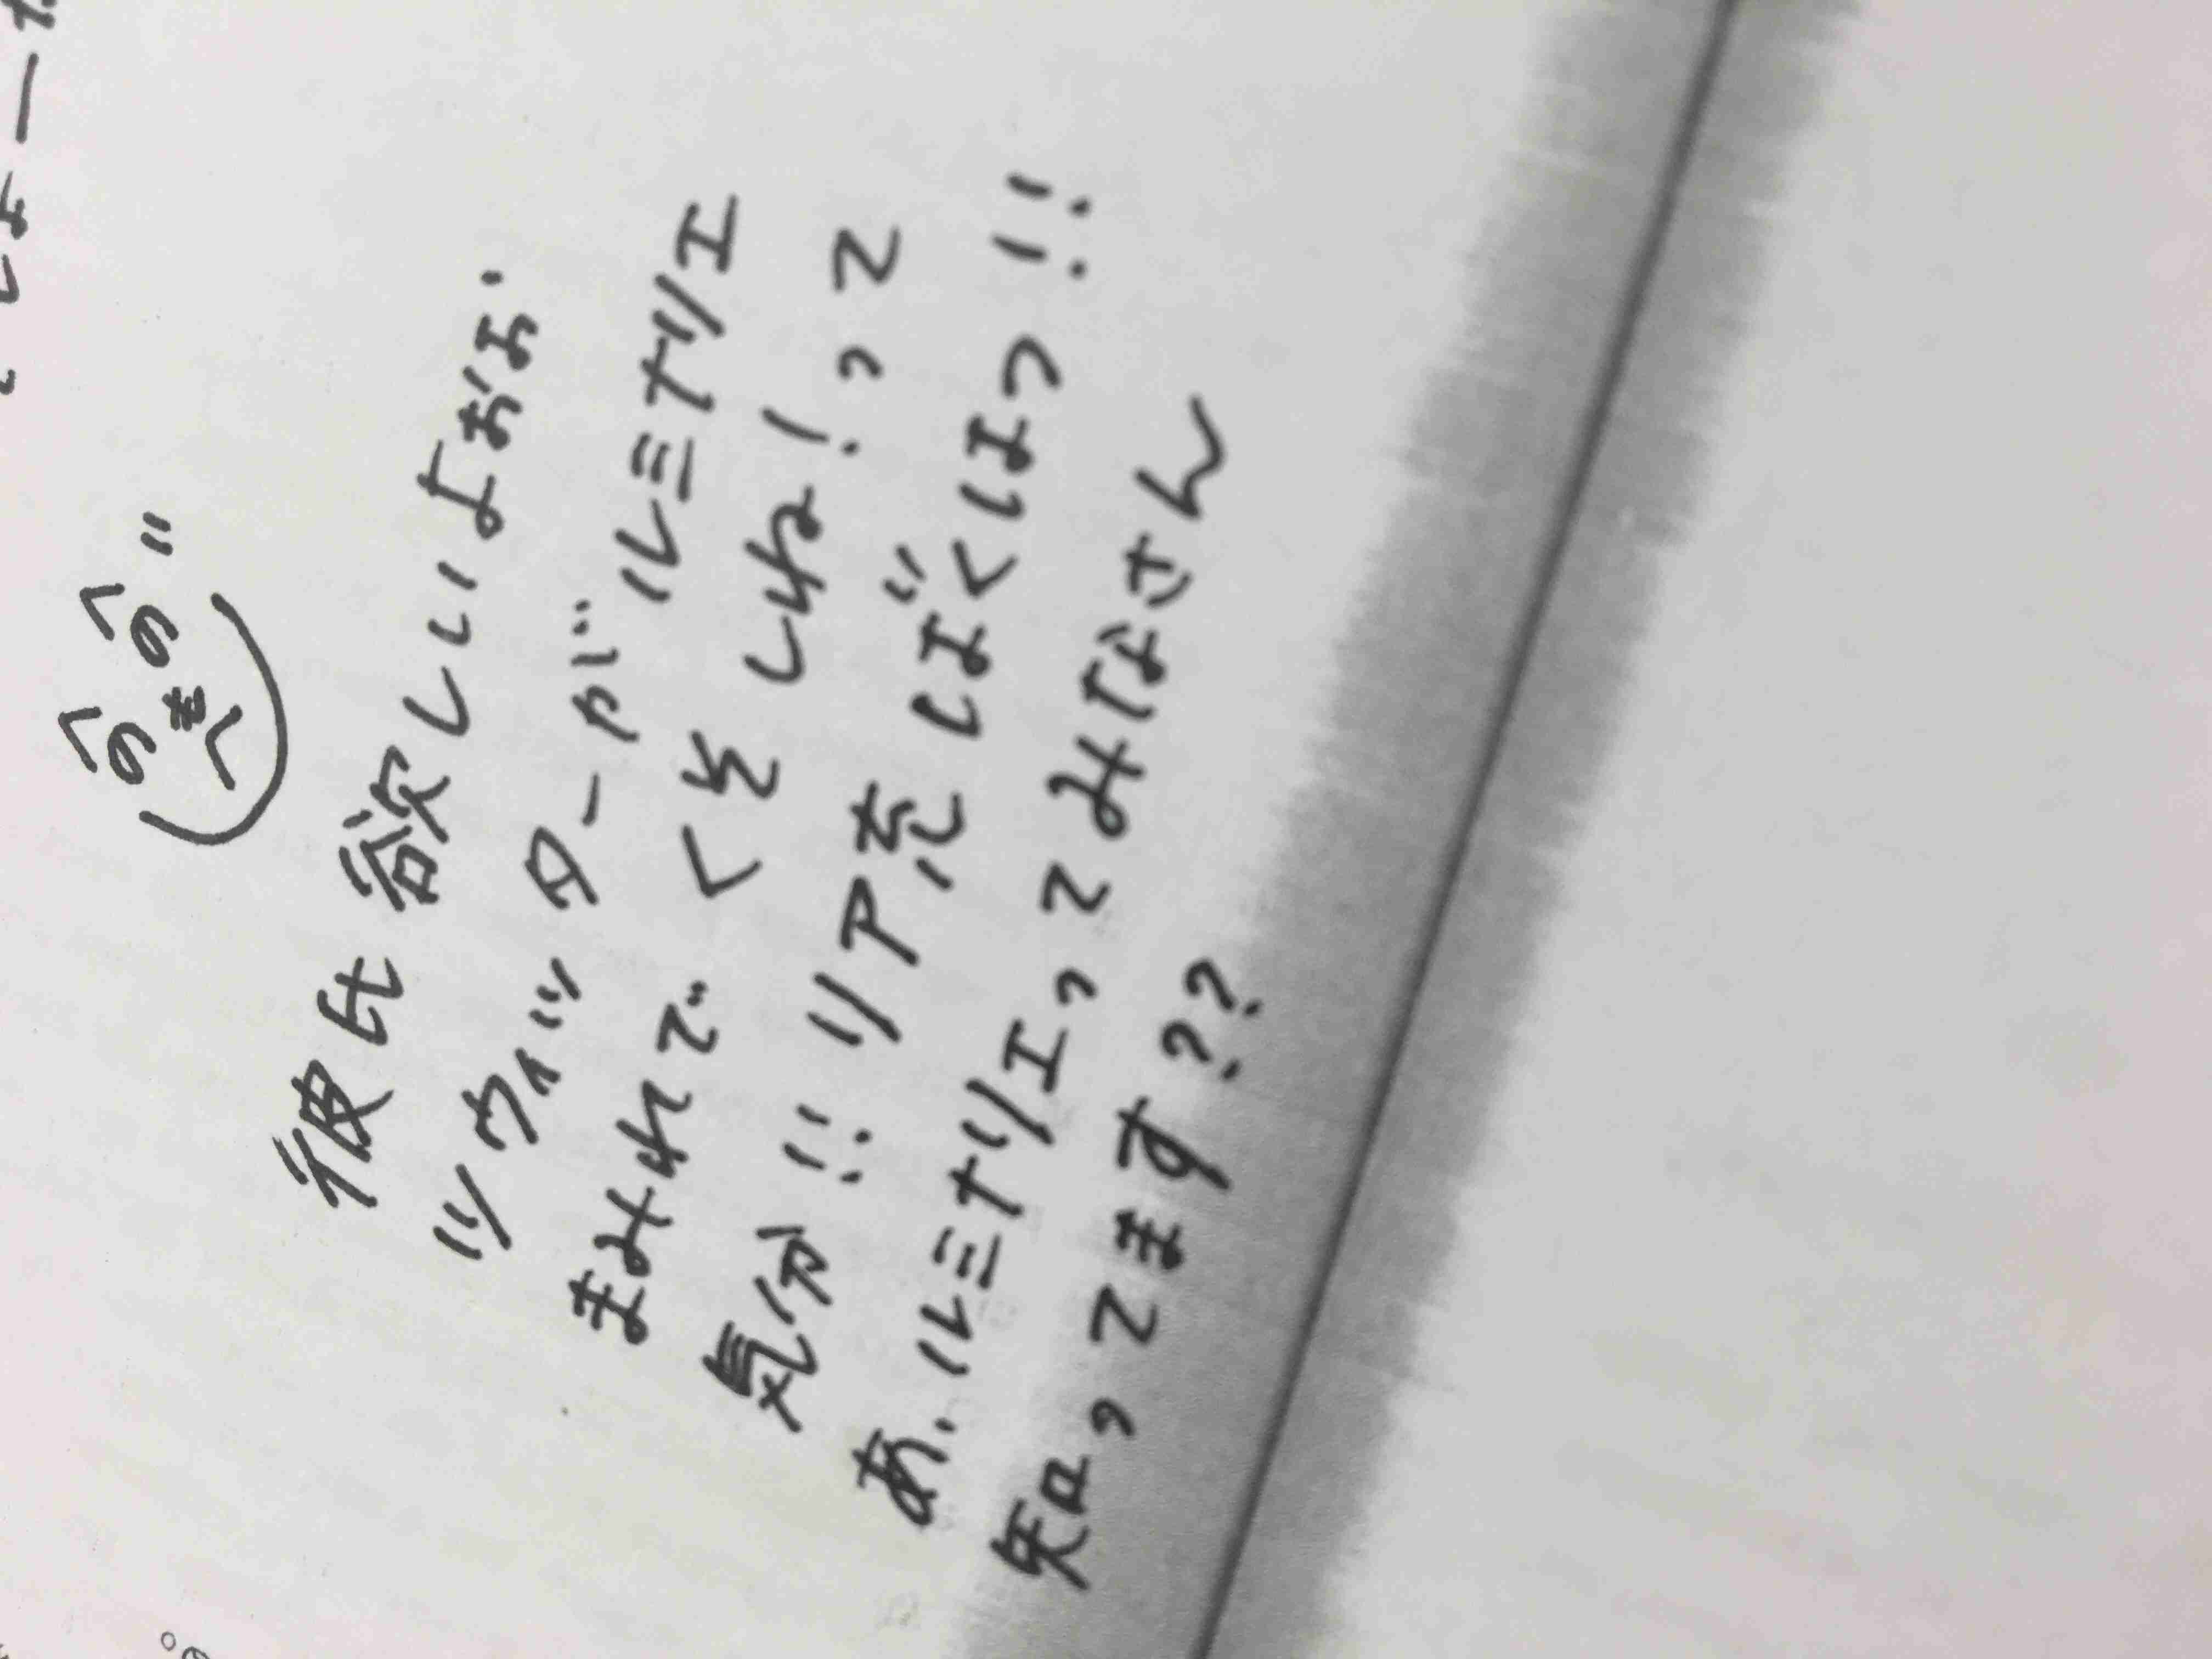 彼氏欲しいよおぉ.
ツウィッターがルミナリエ
まみれでくそしね!って
気分!!リア充しばくはっ!!
あ、ルミナリエってみなさん
知ってます??